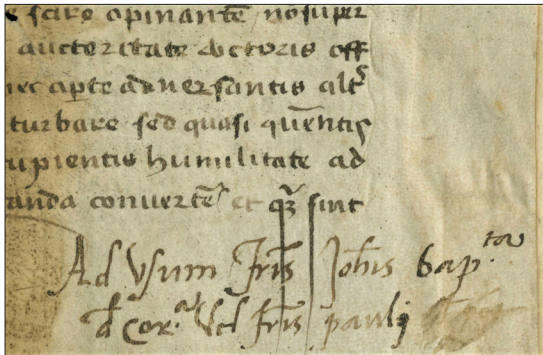 e scire opinante nō super
auctoritate doctoris off
nec aperte adversantis alt
turbare sed quasi querentis
cupientis humilitate ad
anda converte et qz sint
Ad Vsum fris Johis bap.ta
d Cor.a Vel fris paulj